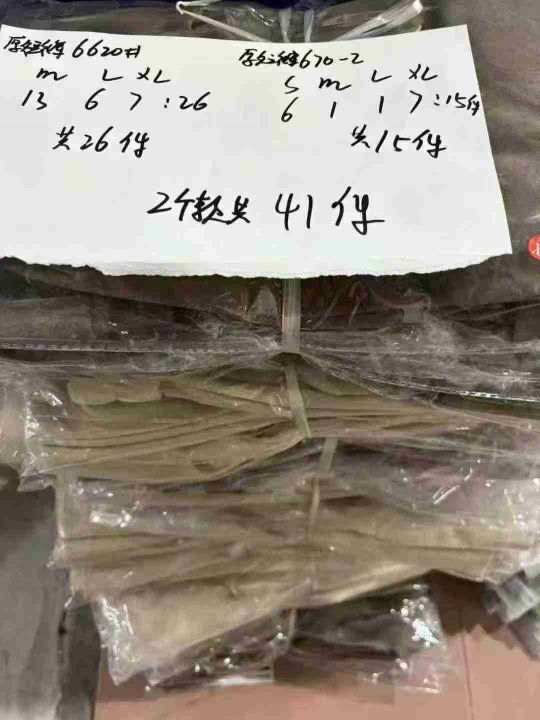 厚短裤6620#
M L XL
13 6 7 :26
共26件
厚短裤670-2
S M L XL
6 1 1 7 :15件
共15件
2个款共 41件